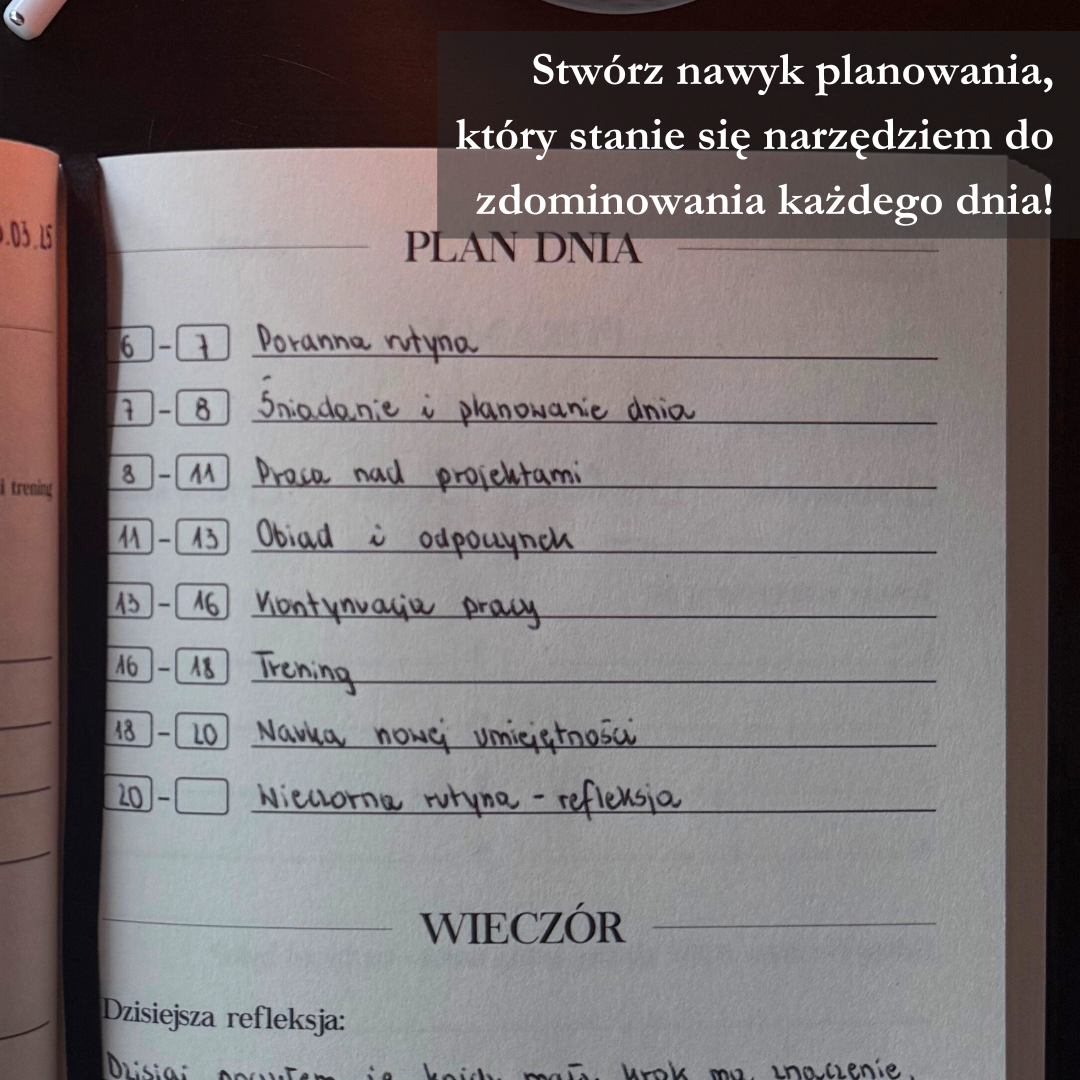 Stwórz nawyk planowania,
który stanie się narzędziem do
zdominowania każdego dnia!
.03.25
PLAN DNIA
6 - 7 Poranna rutyna
7 - 8 Śniadanie i planowanie dnia
8 - 11 Praca nad projektami
i trening
11 - 13 Obiad i odpoczynek
13 - 16 Kontynuacja pracy
16 - 18 Trening
18 - 20 Nauka nowej umiejętności
20 - Wieczorna rutyna - refleksja
WIECZÓR
Dzisiejsza refleksja:
Dzisiaj poczułem że każdy mały krok ma znaczenie.